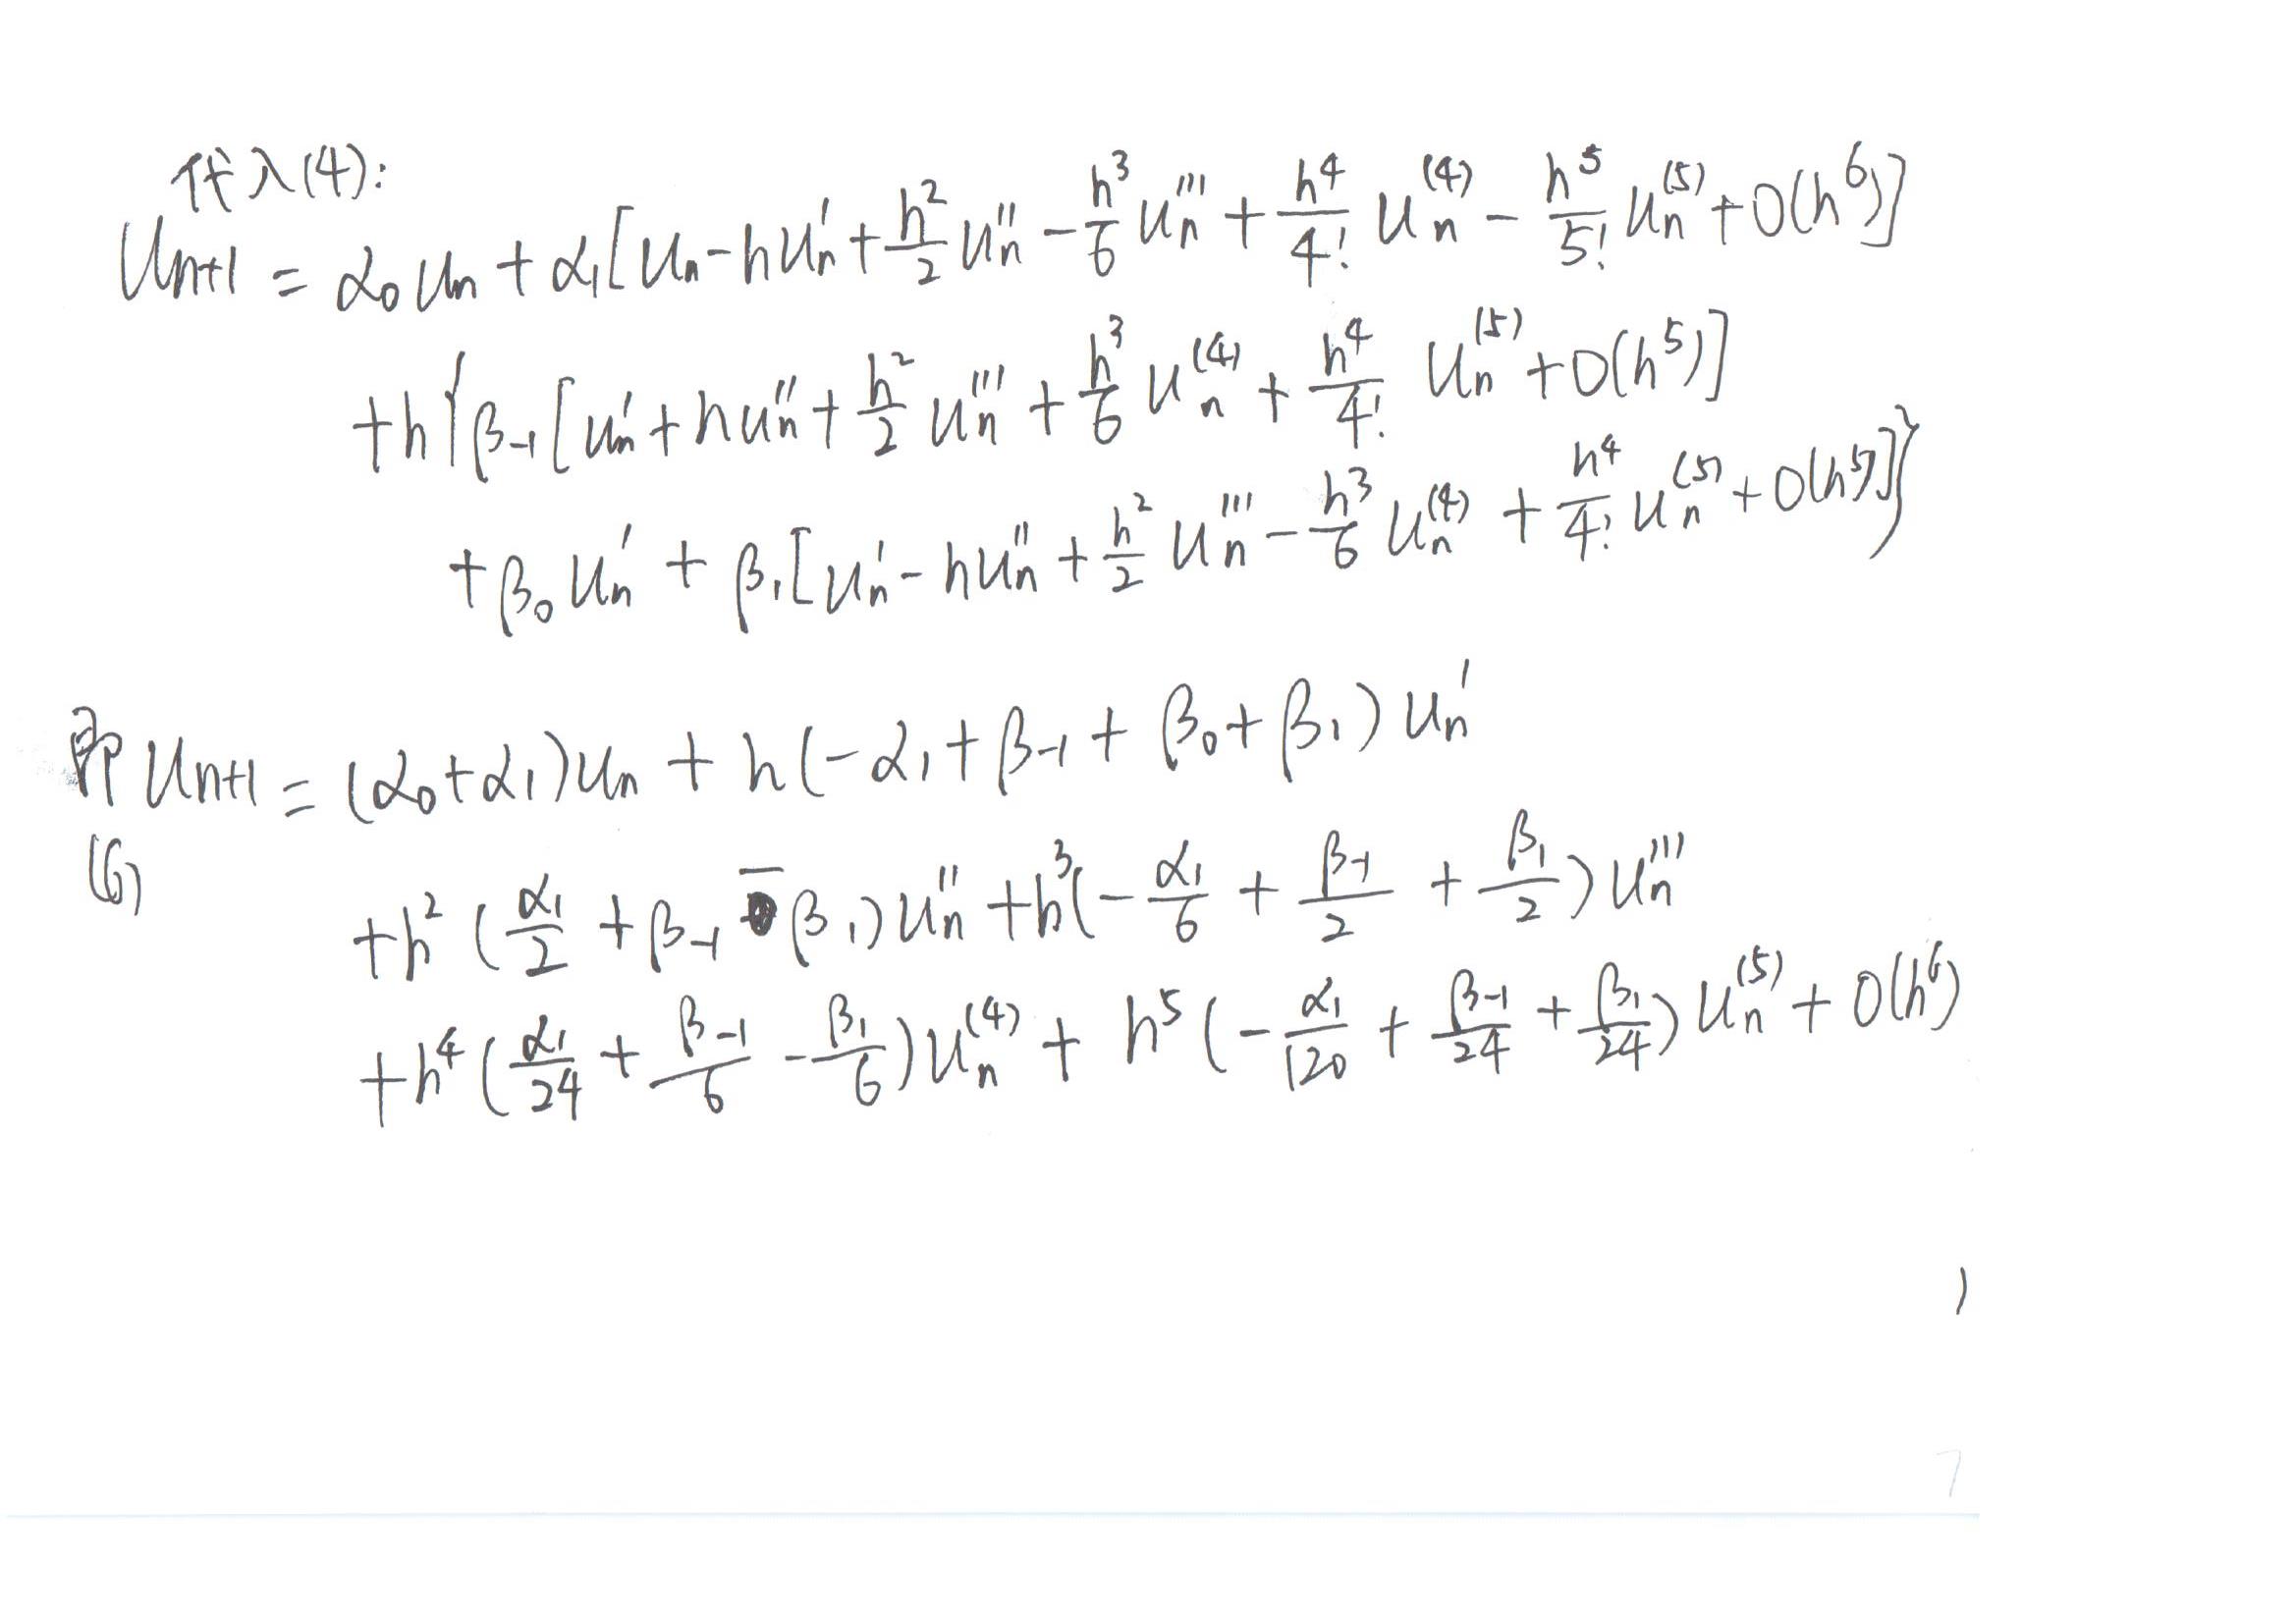 代入(4):
Uₙ₊₁ = α₀uₙ + α₁[uₙ - huₙ' + h²/2 uₙ'' - h³/6 uₙ''' + h⁴/4! uₙ⁽⁴⁾ - h⁵/5! uₙ⁽⁵⁾ + O(h⁶)]
+h{β₋₁[uₙ' + huₙ'' + h²/2 uₙ''' + h³/6 uₙ⁽⁴⁾ + h⁴/4! uₙ⁽⁵⁾ + O(h⁵)]
+β₀uₙ' + β₁[uₙ' - huₙ'' + h²/2 uₙ''' - h³/6 uₙ⁽⁴⁾ + h⁴/4! uₙ⁽⁵⁾ + O(h⁵)]}
即 uₙ₊₁ = (α₀+α₁)uₙ + h(-α₁ + β₋₁ + β₀ + β₁)uₙ'
(6)
+h²(α₁/2 + β₋₁ - β₁)uₙ'' + h³(-α₁/6 + β₋₁/2 + β₁/2)uₙ'''
+h⁴(α₁/24 + β₋₁/6 - β₁/6)uₙ⁽⁴⁾ + h⁵(-α₁/120 + β₋₁/24 + β₁/24)uₙ⁽⁵⁾ + O(h⁶)